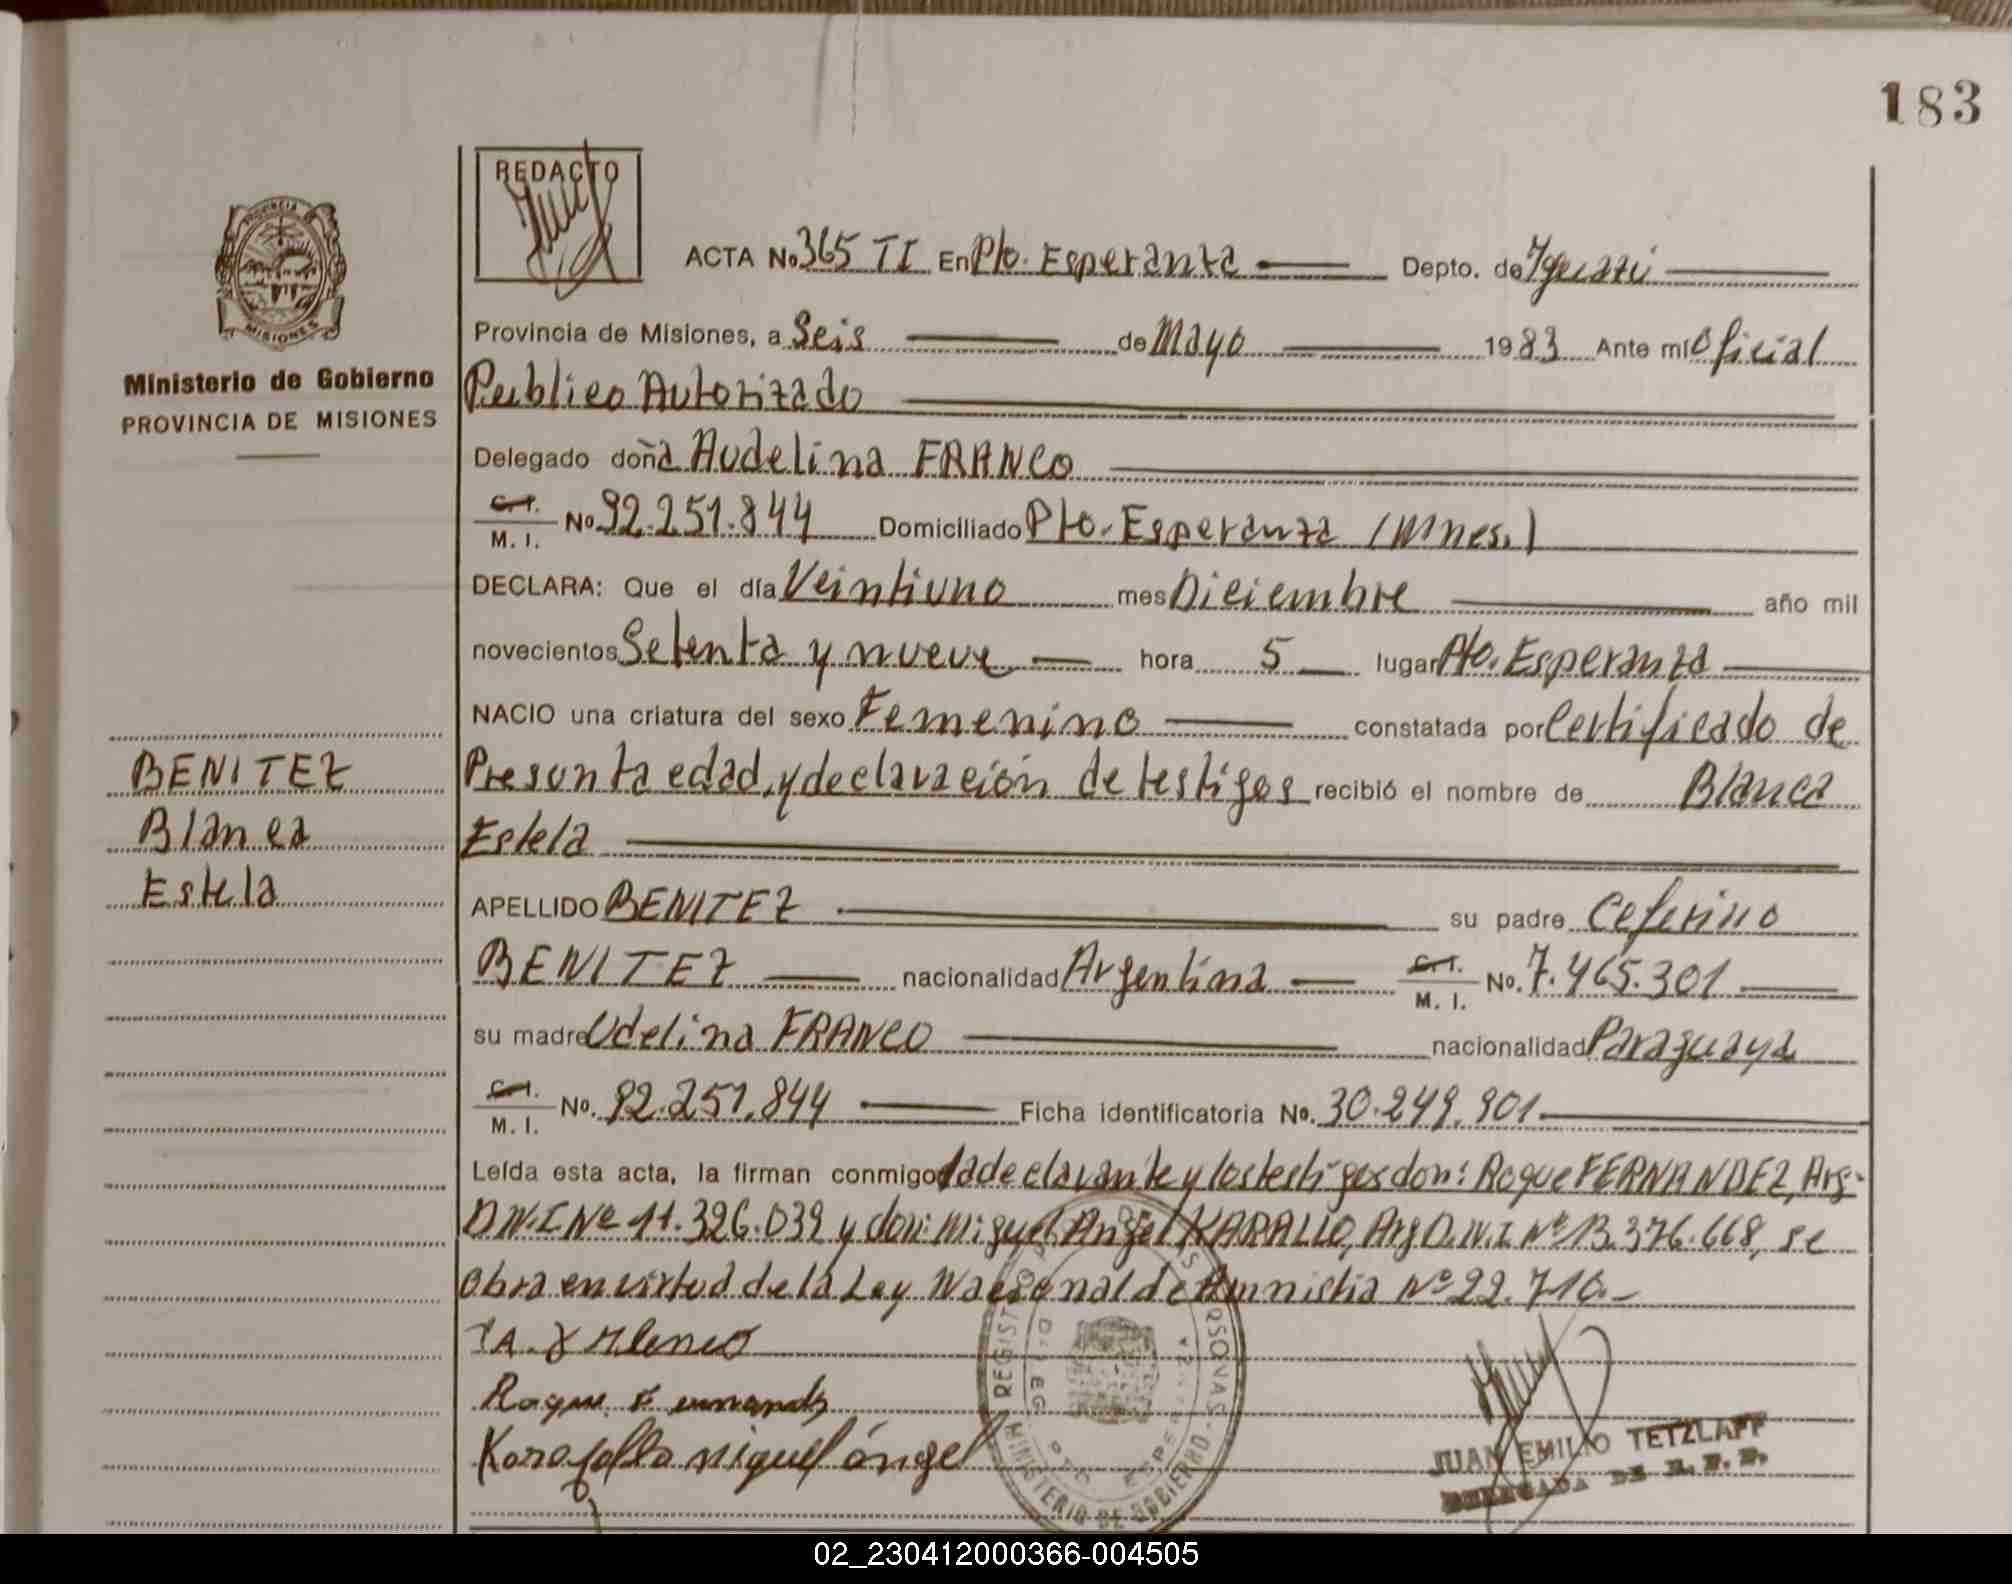 183
REDACTO
ACTA No 365 TI En Pto. Esperanza Depto. de Iguazú
Provincia de Misiones, a Seis de Mayo 1983 Ante mí Oficial
Publico Autorizado
Delegado doña Audelina FRANCO
C.I. M. I. No 92.251.844 Domiciliado Pto. Esperanza (Mnes.)
DECLARA: Que el día Veintiuno mes Diciembre año mil
novecientos Setenta y nueve hora 5 lugar Pto. Esperanza
NACIO una criatura del sexo Femenino constatada por Certificado de
Presunta edad, y declaración de testigos recibió el nombre de Blanca
Estela
APELLIDO BENITEZ su padre Ceferino
BENITEZ nacionalidad Argentina C.I. M. I. No. 7.465.301
su madre Udelina FRANCO nacionalidad Paraguaya
C.I. M. I. No. 92.251.844 Ficha identificatoria No. 30.249.901
Leída esta acta, la firman conmigo la declarante y los testigos don: Roque FERNANDEZ, Arg.
D.N.I. Nº 11.326.039 y don: Miguel Angel KARALLO, Arg D.N.I. Nº 13.376.668, se
Obra en virtud de la Ley Nacional de Amnistia Nº 22.710.-
Roque
miguel ángel
JUAN EMILIO TETZLAFF
DELEGADA DE R. P. P.
MINISTERIO DE GOBIERNO
PROVINCIA
MISIONES
Ministerio de Gobierno
PROVINCIA DE MISIONES
BENITEZ
Blanca
Estela
02_230412000366-004505